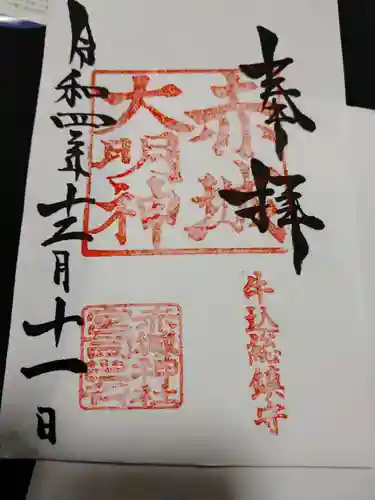 奉拝
赤城
大明神
牛込総鎮守
赤城神社
令和四年十二月十一日